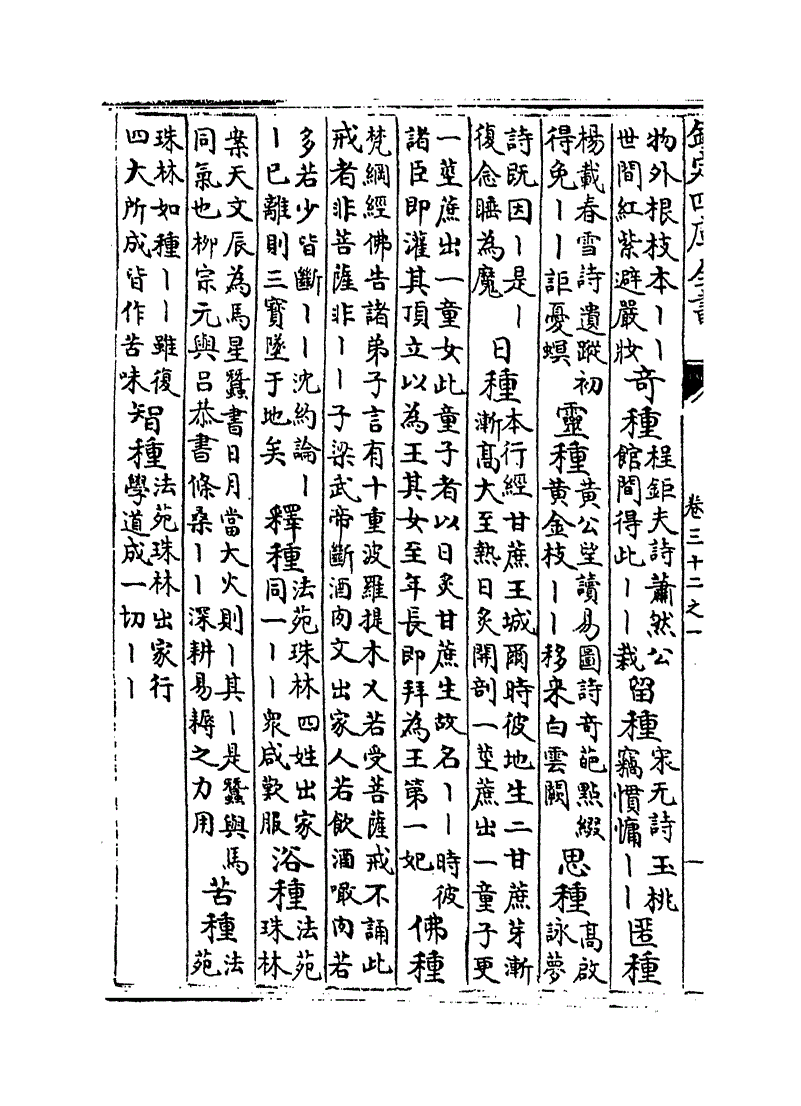 欽定四庫全書 卷三十二之一 一
物外根枝本丨丨
世間紅紫避嚴妝
奇種
程鉅夫詩蕭然公
館間得此丨丨栽
留種
宋无詩玉桃
竊慣慵丨丨
匿種
楊載春雪詩遺蹤初
得免丨丨詎憂螟
靈種
黄公望讀易圖詩奇葩點綴
黄金枝丨丨移來白雲闕
思種
高啟
詠夢
詩既因丨是丨
復念睡為魔
日種
本行經甘蔗王城爾時彼地生二甘蔗芽漸
漸高大至熱日炙開剖一莖蔗出一童子更
一莖蔗出一童女此童子者以日炙甘蔗生故名丨丨時彼
諸臣即灌其頂立以為王其女至年長即拜為王第一妃
佛種
梵綱經佛告諸弟子言有十重波羅提木乂若受菩薩戒不誦此
戒者非菩薩非丨丨子梁武帝斷酒肉文出家人若飲酒噉肉若
多若少皆斷丨丨沈約論丨
丨巳離則三寶墜于地矣
釋種
法苑珠林四姓出家
同一丨丨衆咸歎服
浴種
法苑
珠林
案天文辰為馬星蠶書日月當大火則丨其丨是蠶與馬
同氣也栁宗元與吕恭書條桑丨丨深耕易耨之力用
苦種
法
苑
珠林如種丨丨雖復
四大所成皆作苦味
智種
法苑珠林出家行
學道成一切丨丨